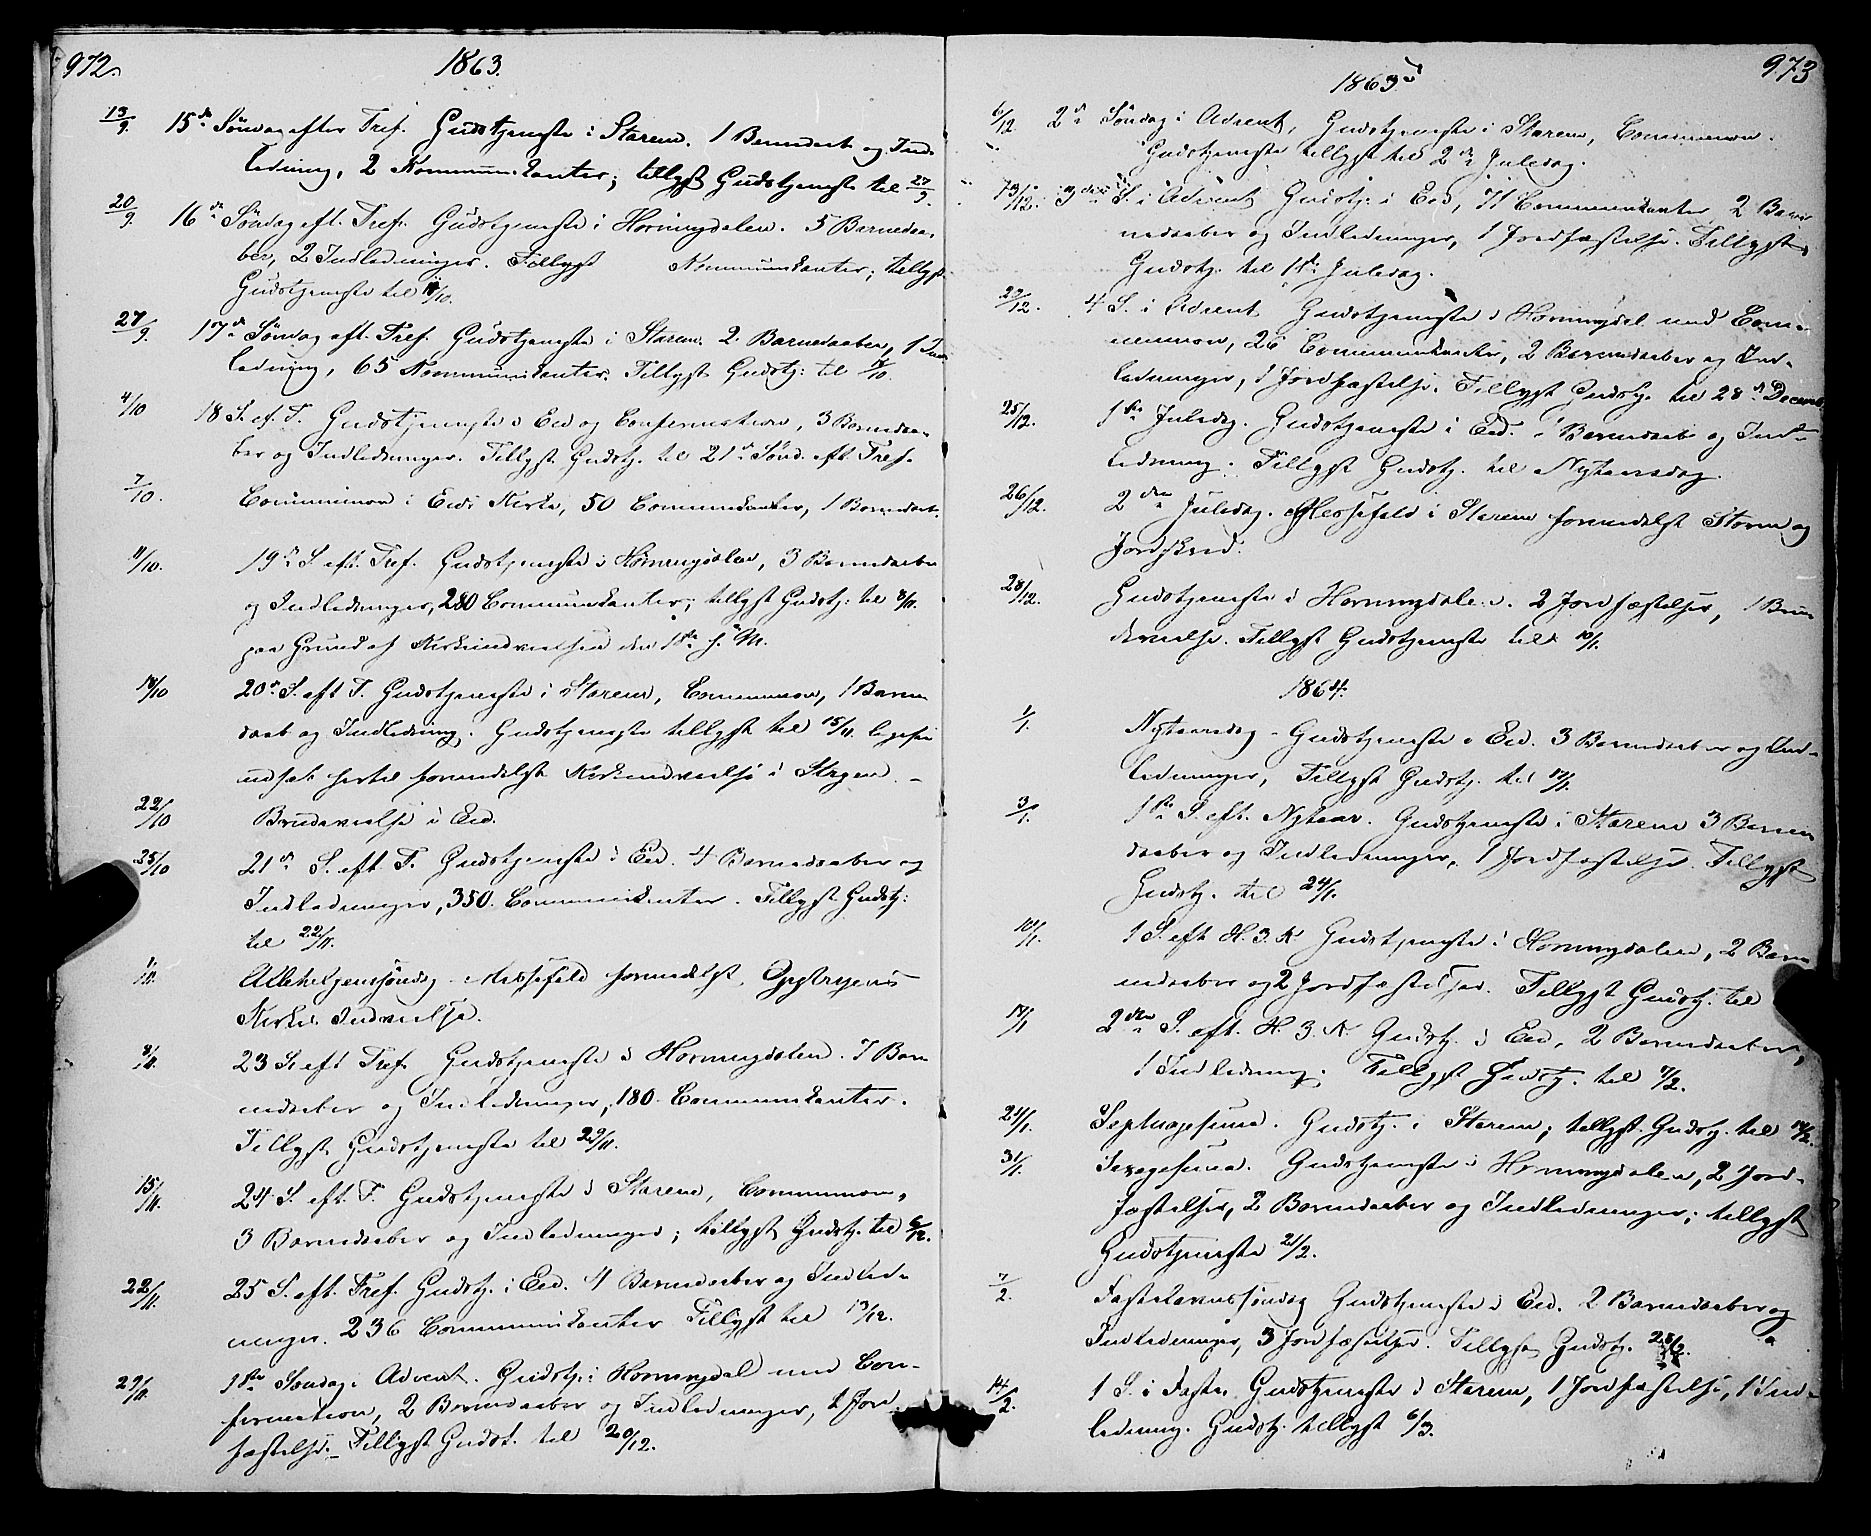 972.
1863.
13/9. 15de Søndag efter Tref. Gudstjeneste i Starem. 1 Barnedaab og Ind-
ledning, 2 Kommunikanter; tillyst Gudstjeneste til 27/9.
20/9. 16de Søndag eft. Tref. Gudstjeneste i Horningdalen. 5 Barnedaa-
ber, 2 Indledninger. Tillyst Kommunikanter; tillyst
Gudstjeneste til /10.
27/9. 17de Søndag eft. Tref. Gudstjeneste i Starem 2 Barnedaaber, 1 Ind-
ledning, 65 Kommunikanter. Tillyst Gudstj: til /10.
4/10 18 S. ef. T. Gudstjeneste i Eid og Confirmation, 3 Barnedaa-
ber og Indledninger. Tillyst Gudstj. til 21de Sønd. eft Tref.
7/10. Communion i Eids Kirke, 50 Communikanter, 1 Barnedaab.
11/10. 19de S. eft. Tref. Gudstjeneste i Horningdalen, 3 Barnedaaber
og Indledninger, 280 Communikanter; tillyst Gudstj: til 8/11.
paa Grund af Kirkeindvielsen den 1ste f. M.
18/10 20de S. eft T. Gudstjeneste i Starem, Communion, 1 Barne
daab og Indledning. Gudstjeneste tillyst til 15/11.
udsat formedelst Kirkeindvielse i Stryen. -
22/10 Brudevielse i Eid.
25/10 21de S. eft T. Gudstjeneste i Eid. 4 Barnedaaber og
Indledninger, 350 Communikanter. Tillyst Gudstj:
til 22/11.
1/11. Allehelgenssøndag - Messefald formedelst Opstryens
Kirkes Indvielse.
8/11. 23 S. eft Tref. Gudstjeneste i Horningdalen. 7 Bar-
nedaaber og Indledninger, 180 Communikanter.
Tillyst Gudstjeneste til 29/11.
15/11. 24 S. eft. T. Gudstjeneste i Starem, Communion,
3 Barnedaaber og Indledninger; tillyst Gudstj. til 6/12.
22/11. 25 S. eft. Tref. Gudstj. i Eid. 4 Barnedaaber og Indled-
ninger. 236 Communikanter Tillyst til 13/12.
29/11. 1ste Søndag i Advent. Gudstj: i Horningdal med Con-
firmation, 2 Barnedaaber og Indledninger, 1 Jord
fæstelse. - Tillyst Gudst. til 20/12.
973
1863
6/12 2de Søndag i Advent, Gudstjeneste i Starem, Communion.
Gudstjeneste tillyst til 2den Juledag.
13/12. 3die S. i Advent Gudstj. i Eid, 71 Communikanter, 2 Bar-
nedaaber og Indledninger, 1 Jordfæstelse. Tillyst
Gudstj. til 1ste Juledag.
20/12. 4 S. i Advent Gudstjeneste i Horningdal med Com-
munion, 26 Communikanter, 2 Barnedaaber og Ind-
ledninger, 1 Jordfæstelse. Tillyst Gudstj. til 28de Decemb
25/12. 1ste Juledag. Gudstjeneste i Eid. 1 Barnedaab og Ind-
ledning. Tillyst Gudstj. til Nytaarsdag.
26/12. 2den Juledag. Messefald i Starem formedelst Storm og
Jordskred.
28/12. Gudstjeneste i Horningdalen. 2 Jordfæstelser, 1 Bru-
devielse. Tillyst Gudstjeneste til 10/1.
1864.
1/1. Nytaarsdag - Gudstjeneste i Eid. 3 Barnedaaber og Ind-
ledninger, Tillyst Gudstj. til 17/1.
3/1. 1ste S. eft. Nytaar. Gudstjeneste i Starem 3 Barne
daaber og Indledninger, 1 Jordfæstelse. Tillyst
Gudstj. til 24/1.
10/1. 1 S. eft H. 3. K Gudstjeneste i Hornindalen, 2 Bar-
nedaaber og 2 Jordfæstelser. Tillyst Gudstj. til
17/1 2den S. eft. H. 3. K. Gudstj. i Eid, 2 Barnedaaber,
1 Indledning. Tillyst Gudstj. til 7/2.
24/1. Septuagesima. Gudstj. i Starem; tillyst Gudstj. til 14/2.
31/1. Sexagesima. Gudstjeneste i Hornningdalen, 2 Jord-
fæstelser, 2 Barnedaaber og Indledninger; tillyst
Gudstjeneste 21/2.
7/2. Fastelavnssøndag Gudstjeneste i Eid. 2 Barnedaaber og
Indledninger, 3 Jordfæstelser. Tillyst Gudstj. 28/2.
14/2. 1 S. i Faste. Gudstjeneste i Starem, 1 Jordfæstelse, 1 Ind-
ledning. Gudstj. tillyst 6/3.